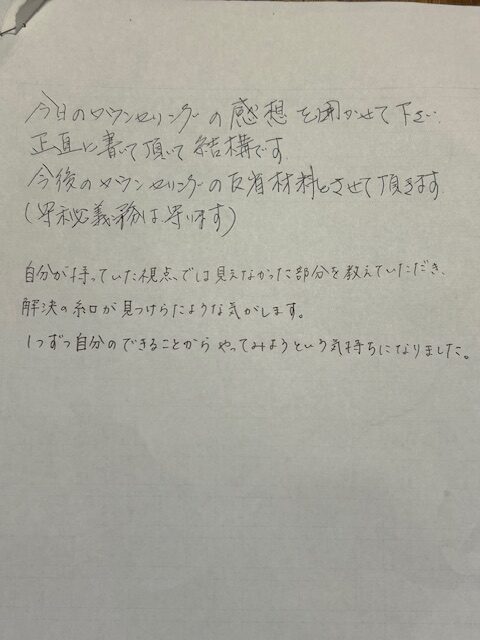 今日のカウンセリングの感想を聞かせて下さい.
正直に書いて頂いて結構です
今後のカウンセリングの反省材料とさせて頂きます
(守秘義務は守ります)
自分が持っていた視点では見えなかった部分を教えていただき、
解決の糸口が見つけらたような気がします。
1つずつ自分のできることからやってみようという気持ちになりました。